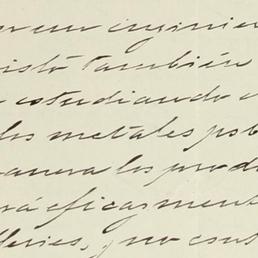 por un ingenier
isto también
estudiando
los metales pob
anera los prod
rá eficazment
feries, y no cont